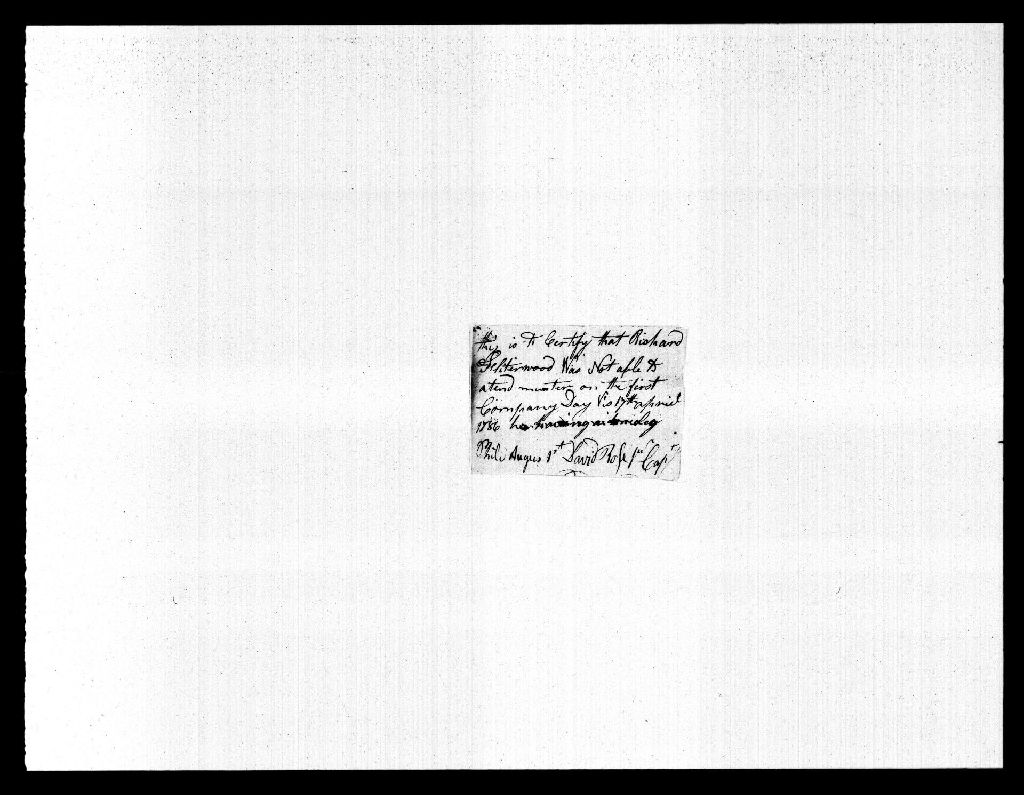 this is to Certify that Richard
Was Not able to
atend muster on the first
Company Day Vis 17th april
1786 he having a
Phila Augus 1st David Rose Capt